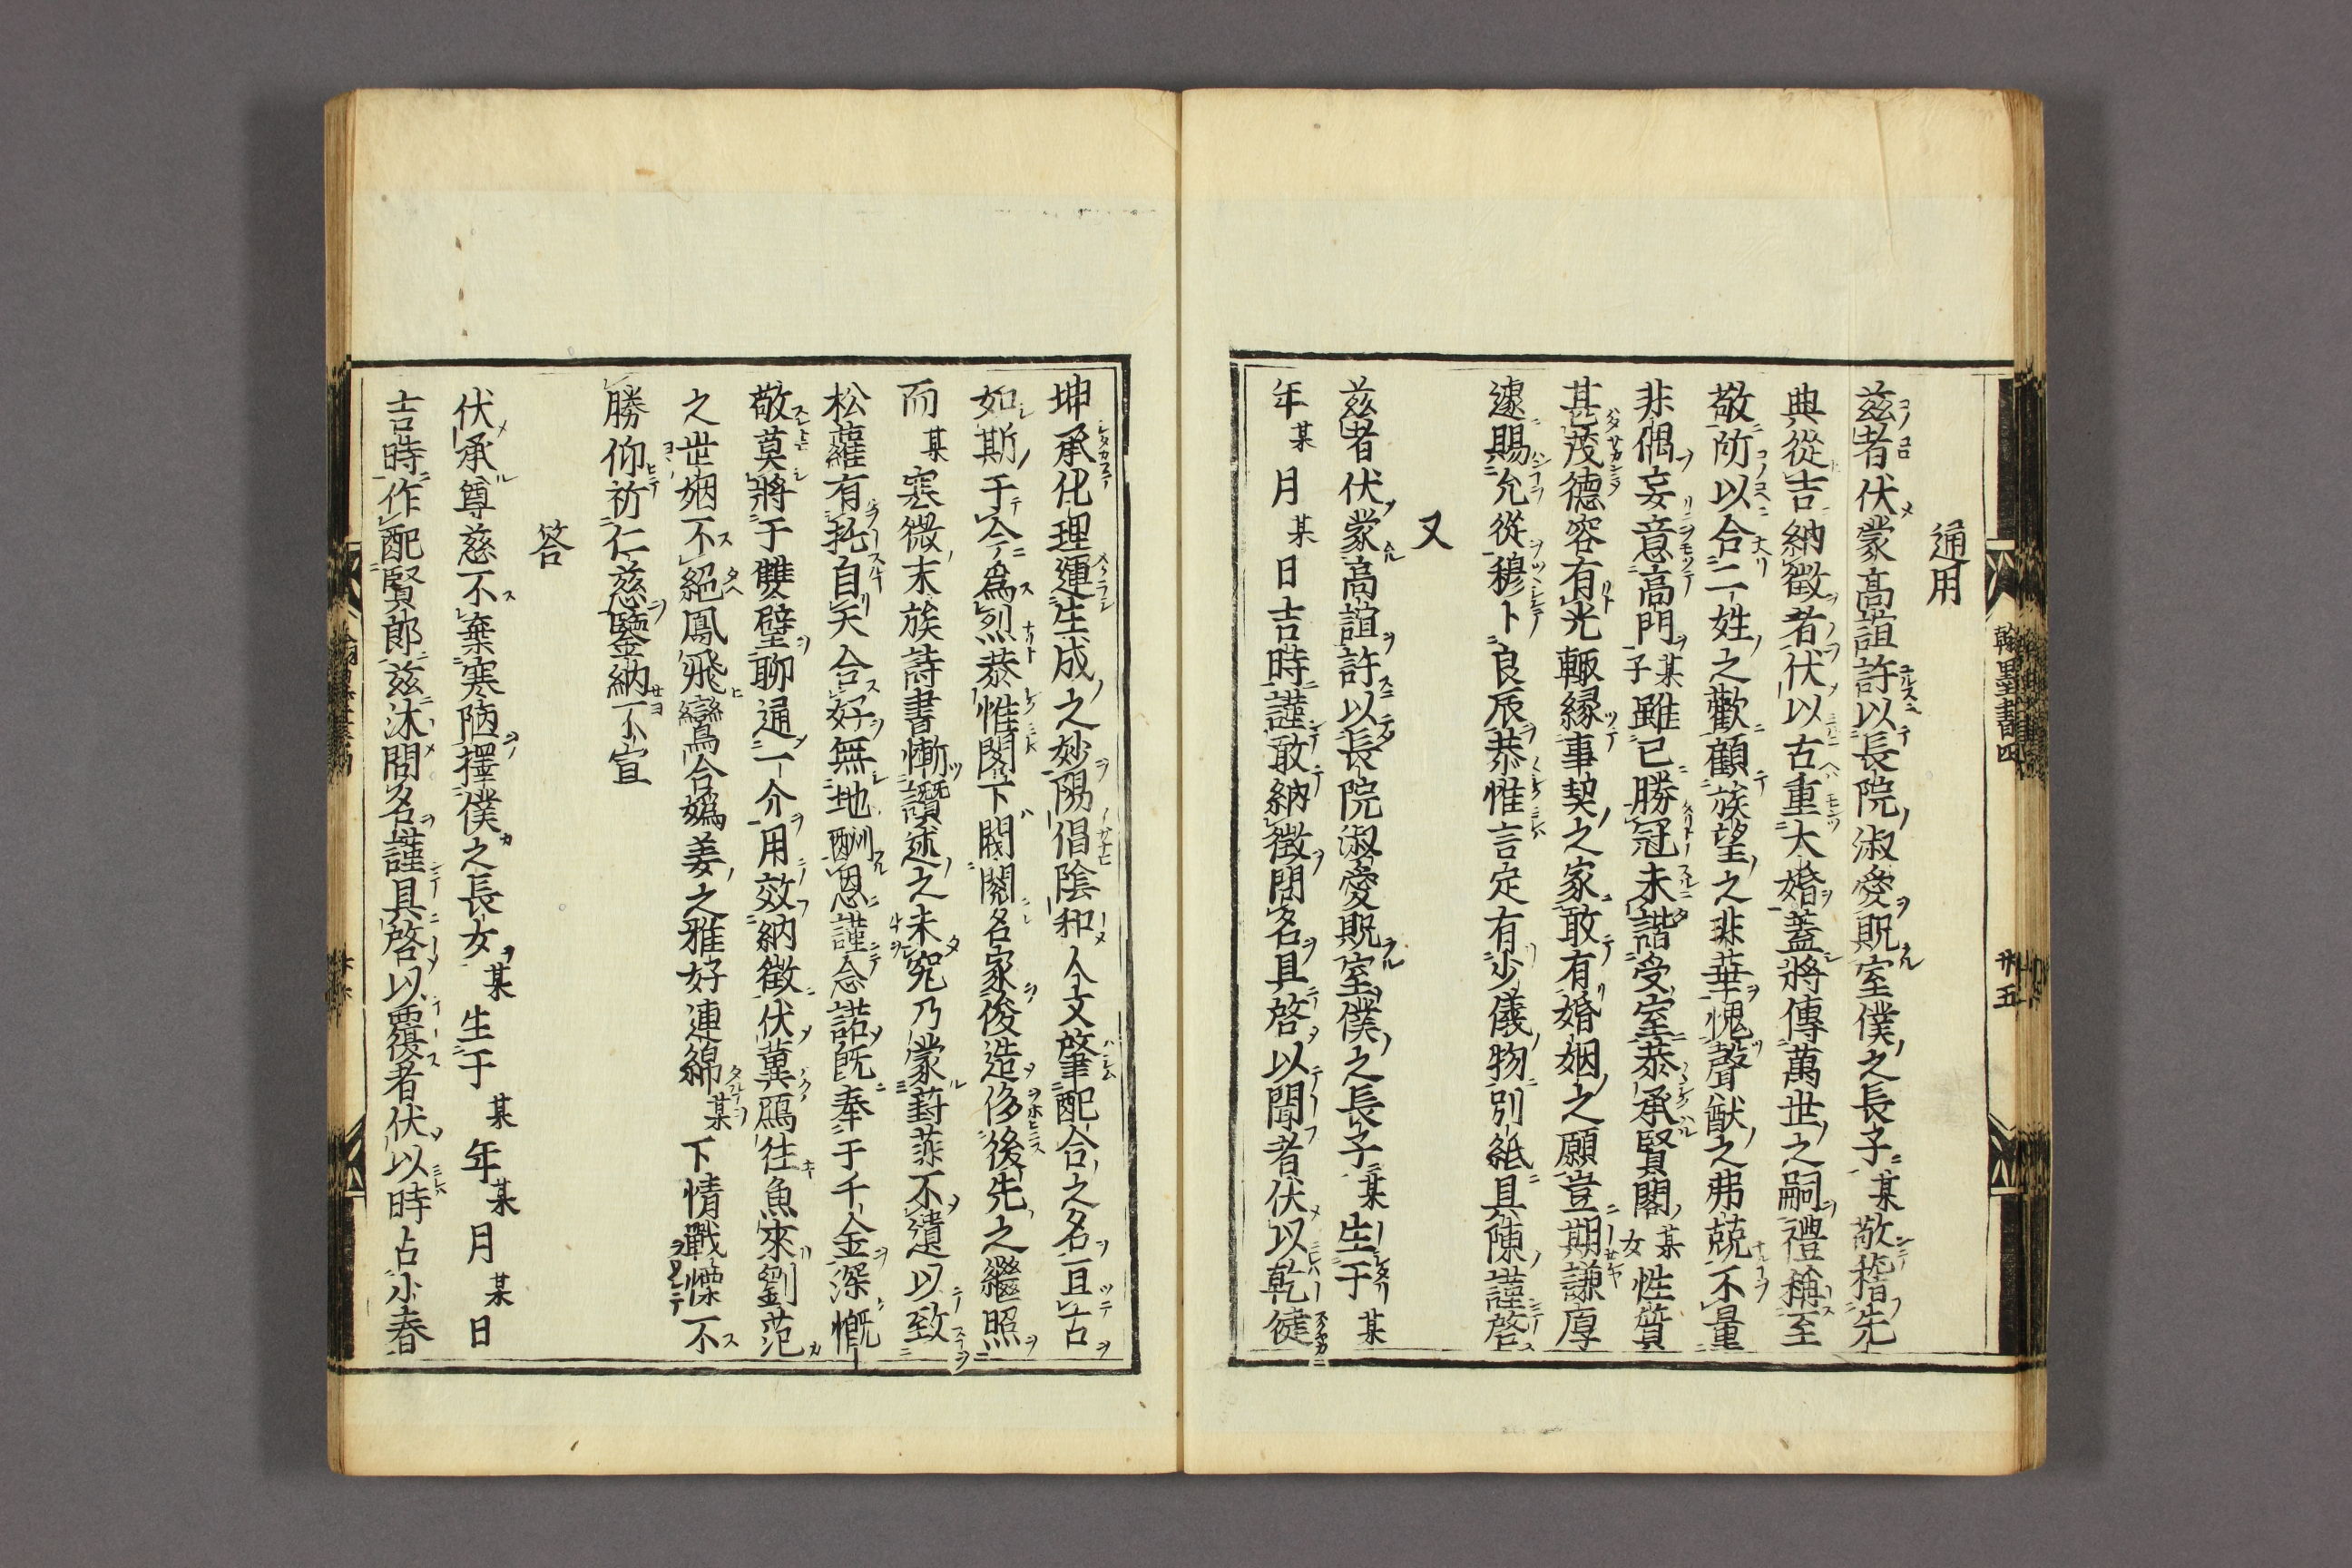 通用
茲者伏蒙高誼許以長院淑愛貺室僕之長子某敬稽先
典從吉納徵者伏以古重大婚蓋將傳萬世之嗣禮稱至
敬所以合二姓之歡顧族望之非華愧聲猷之弗兢不量
非偶妄意高門某子雖已勝冠未諧受室恭承賢閣某女性質
甚茂德容有光輙緣事契之家敢有婚姻之願豈期謙厚
遽賜允從穆卜良辰恭惟言定有少儀物別紙具陳謹啓
又
茲者伏蒙高誼許以長院淑愛貺室僕之長子某生于某
年某月某日吉時謹敢納徵問名具啓以聞者伏以乾健
翰墨書四
卅五
坤承化理運生成之妙陽倡陰和人文肇配合之名亘古
如斯于今爲烈恭惟閣下閥閱名家俊造侈後先之繼照
而某寒微末族詩書慚讚述之未究乃蒙葑菲不遺以致
松蘿有托自天合好無地酬恩謹念諾既奉于千金深慨
敬莫將于雙璧聊通一介用效納徵伏冀鴈往魚來劉范
之世姻不絕鳳飛鸞合嬀姜之雅好連綿某下情戰慄不
勝仰祈仁慈鑒納不宣
答
伏承尊慈不棄寒陋擇僕之長女某生于某年某月某日
吉時作配賢郎茲沐問名謹具啓以覆者伏以時占小春